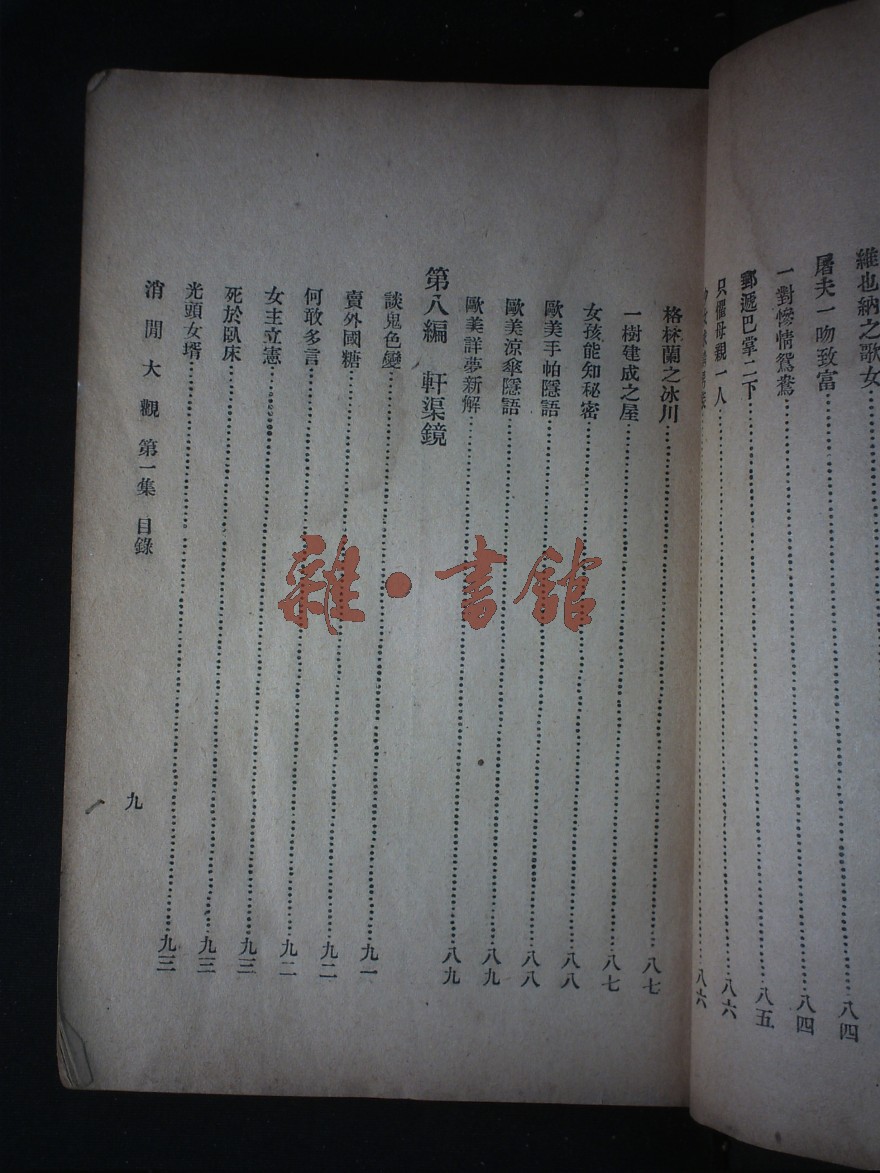 維也納之歌女 八四
屠夫一吻致富 八四
一對慘情鴛鴦 八五
郵遞巴掌二下 八六
只僱母親一人 八六
格林蘭之冰川 八七
一樹建成之屋 八七
女孩能知秘密 八八
歐美手帕隱語 八八
歐美涼傘隱語 八九
歐美詳夢新解 八九
第八編 軒渠鏡
談鬼色變 九一
賣外國糖 九二
何敢多言 九二
女主立憲 九三
死於臥床 九三
光頭女壻 九三
消閒大觀 第一集 目錄
九
雜·書館